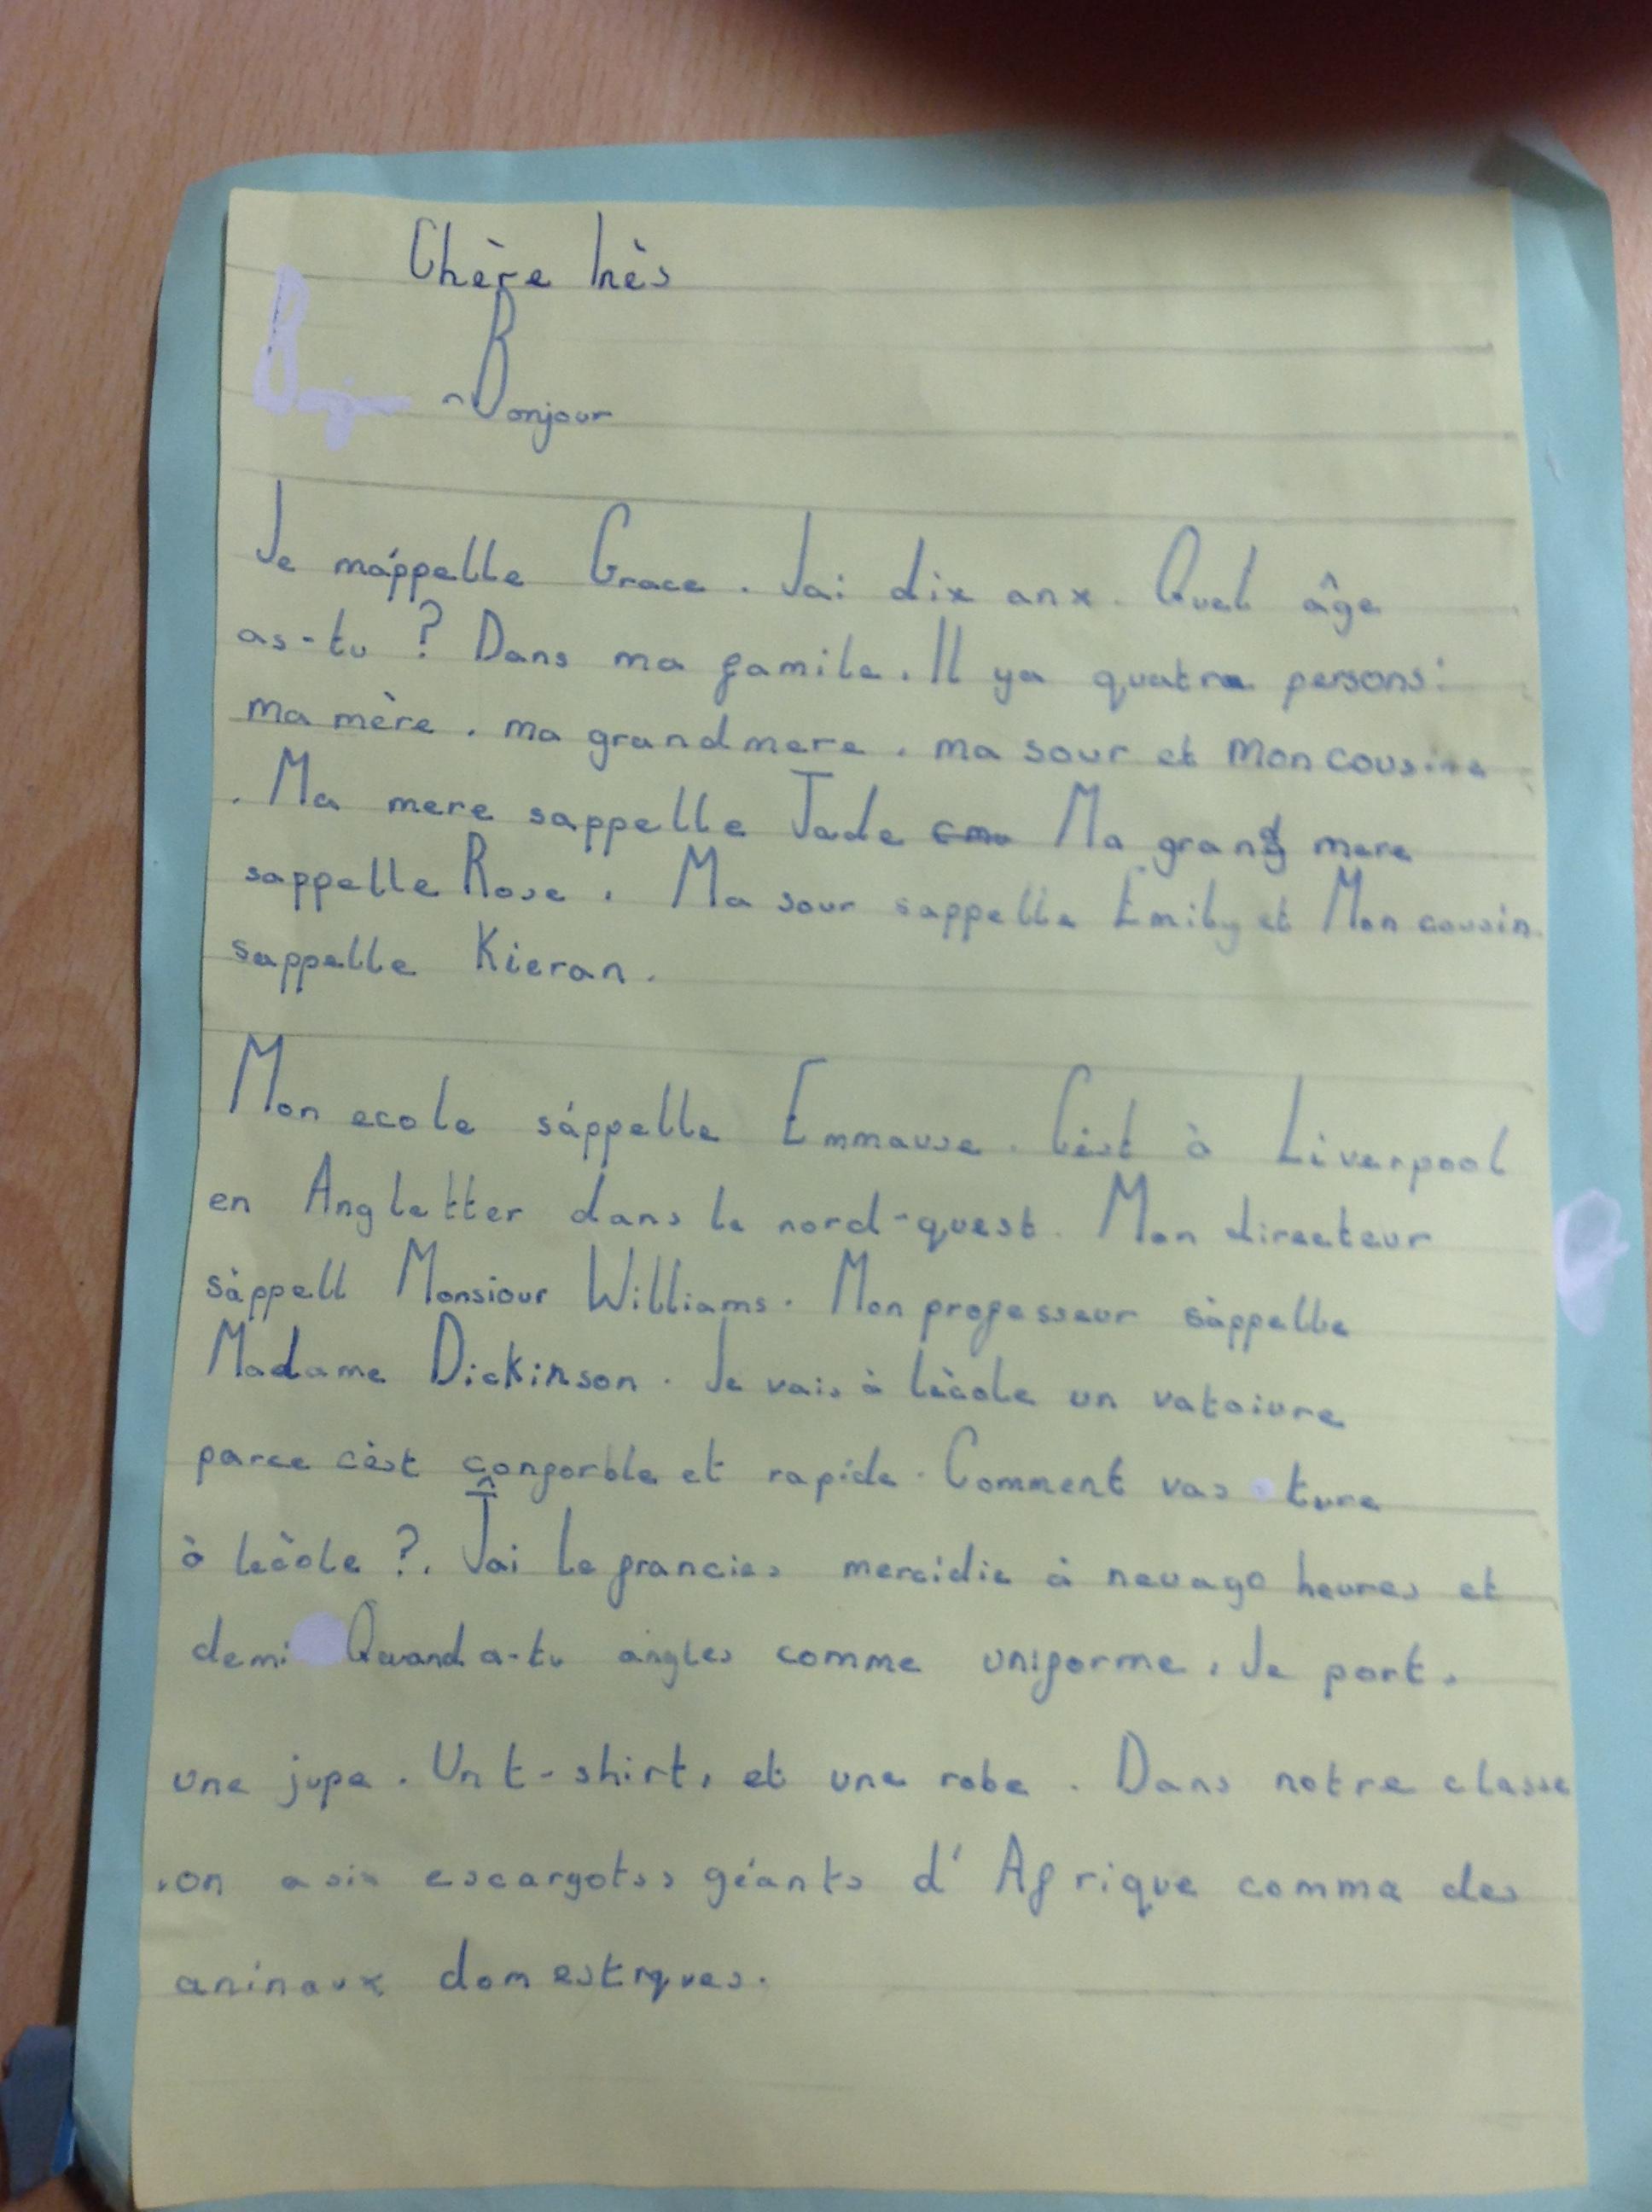 Chère Inès
Bonjour
Je m'appelle Grace. Jai dix anx. Quel âge
as-tu ? Dans ma famile. Il ya quatre persons:
ma mère, ma grandmere, ma sour et Mon cousine
. Ma mere sappelle Jade Ma grand mere
sappelle Rose. Ma sour sappelle Emily et Mon cousin
sappelle Kieran.
Mon ecole s'appelle Emmause. C'est à Liverpool
en Angletter dans le nord-quest. Mon directeur
s'appell Monsiour Williams. Mon professeur s'appelle
Madame Dickinson. Je vais à lècole un vatoiure
parce cèst conforble et rapide. Comment vas ture
à lecòle ?. Jai le francies mercidie à neuago heures et
demi Quand a-tu angles comme uniforme, Je port,
une jupe. Un t-shirt, et une robe. Dans notre classe
, on a six escargotss géants d' Afrique comme des
aninaux domestiques.